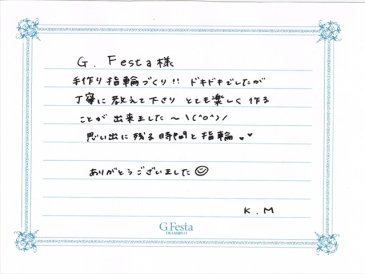 G. Festa様
手作り指輪づくり!! ドキドキでしたが
丁寧に教えて下さり とても楽しく作る
ことが出来ました〜\(^o^)/
思い出に残る時間と指輪。♥♥
ありがとうございました☺
K.M
G.Festa